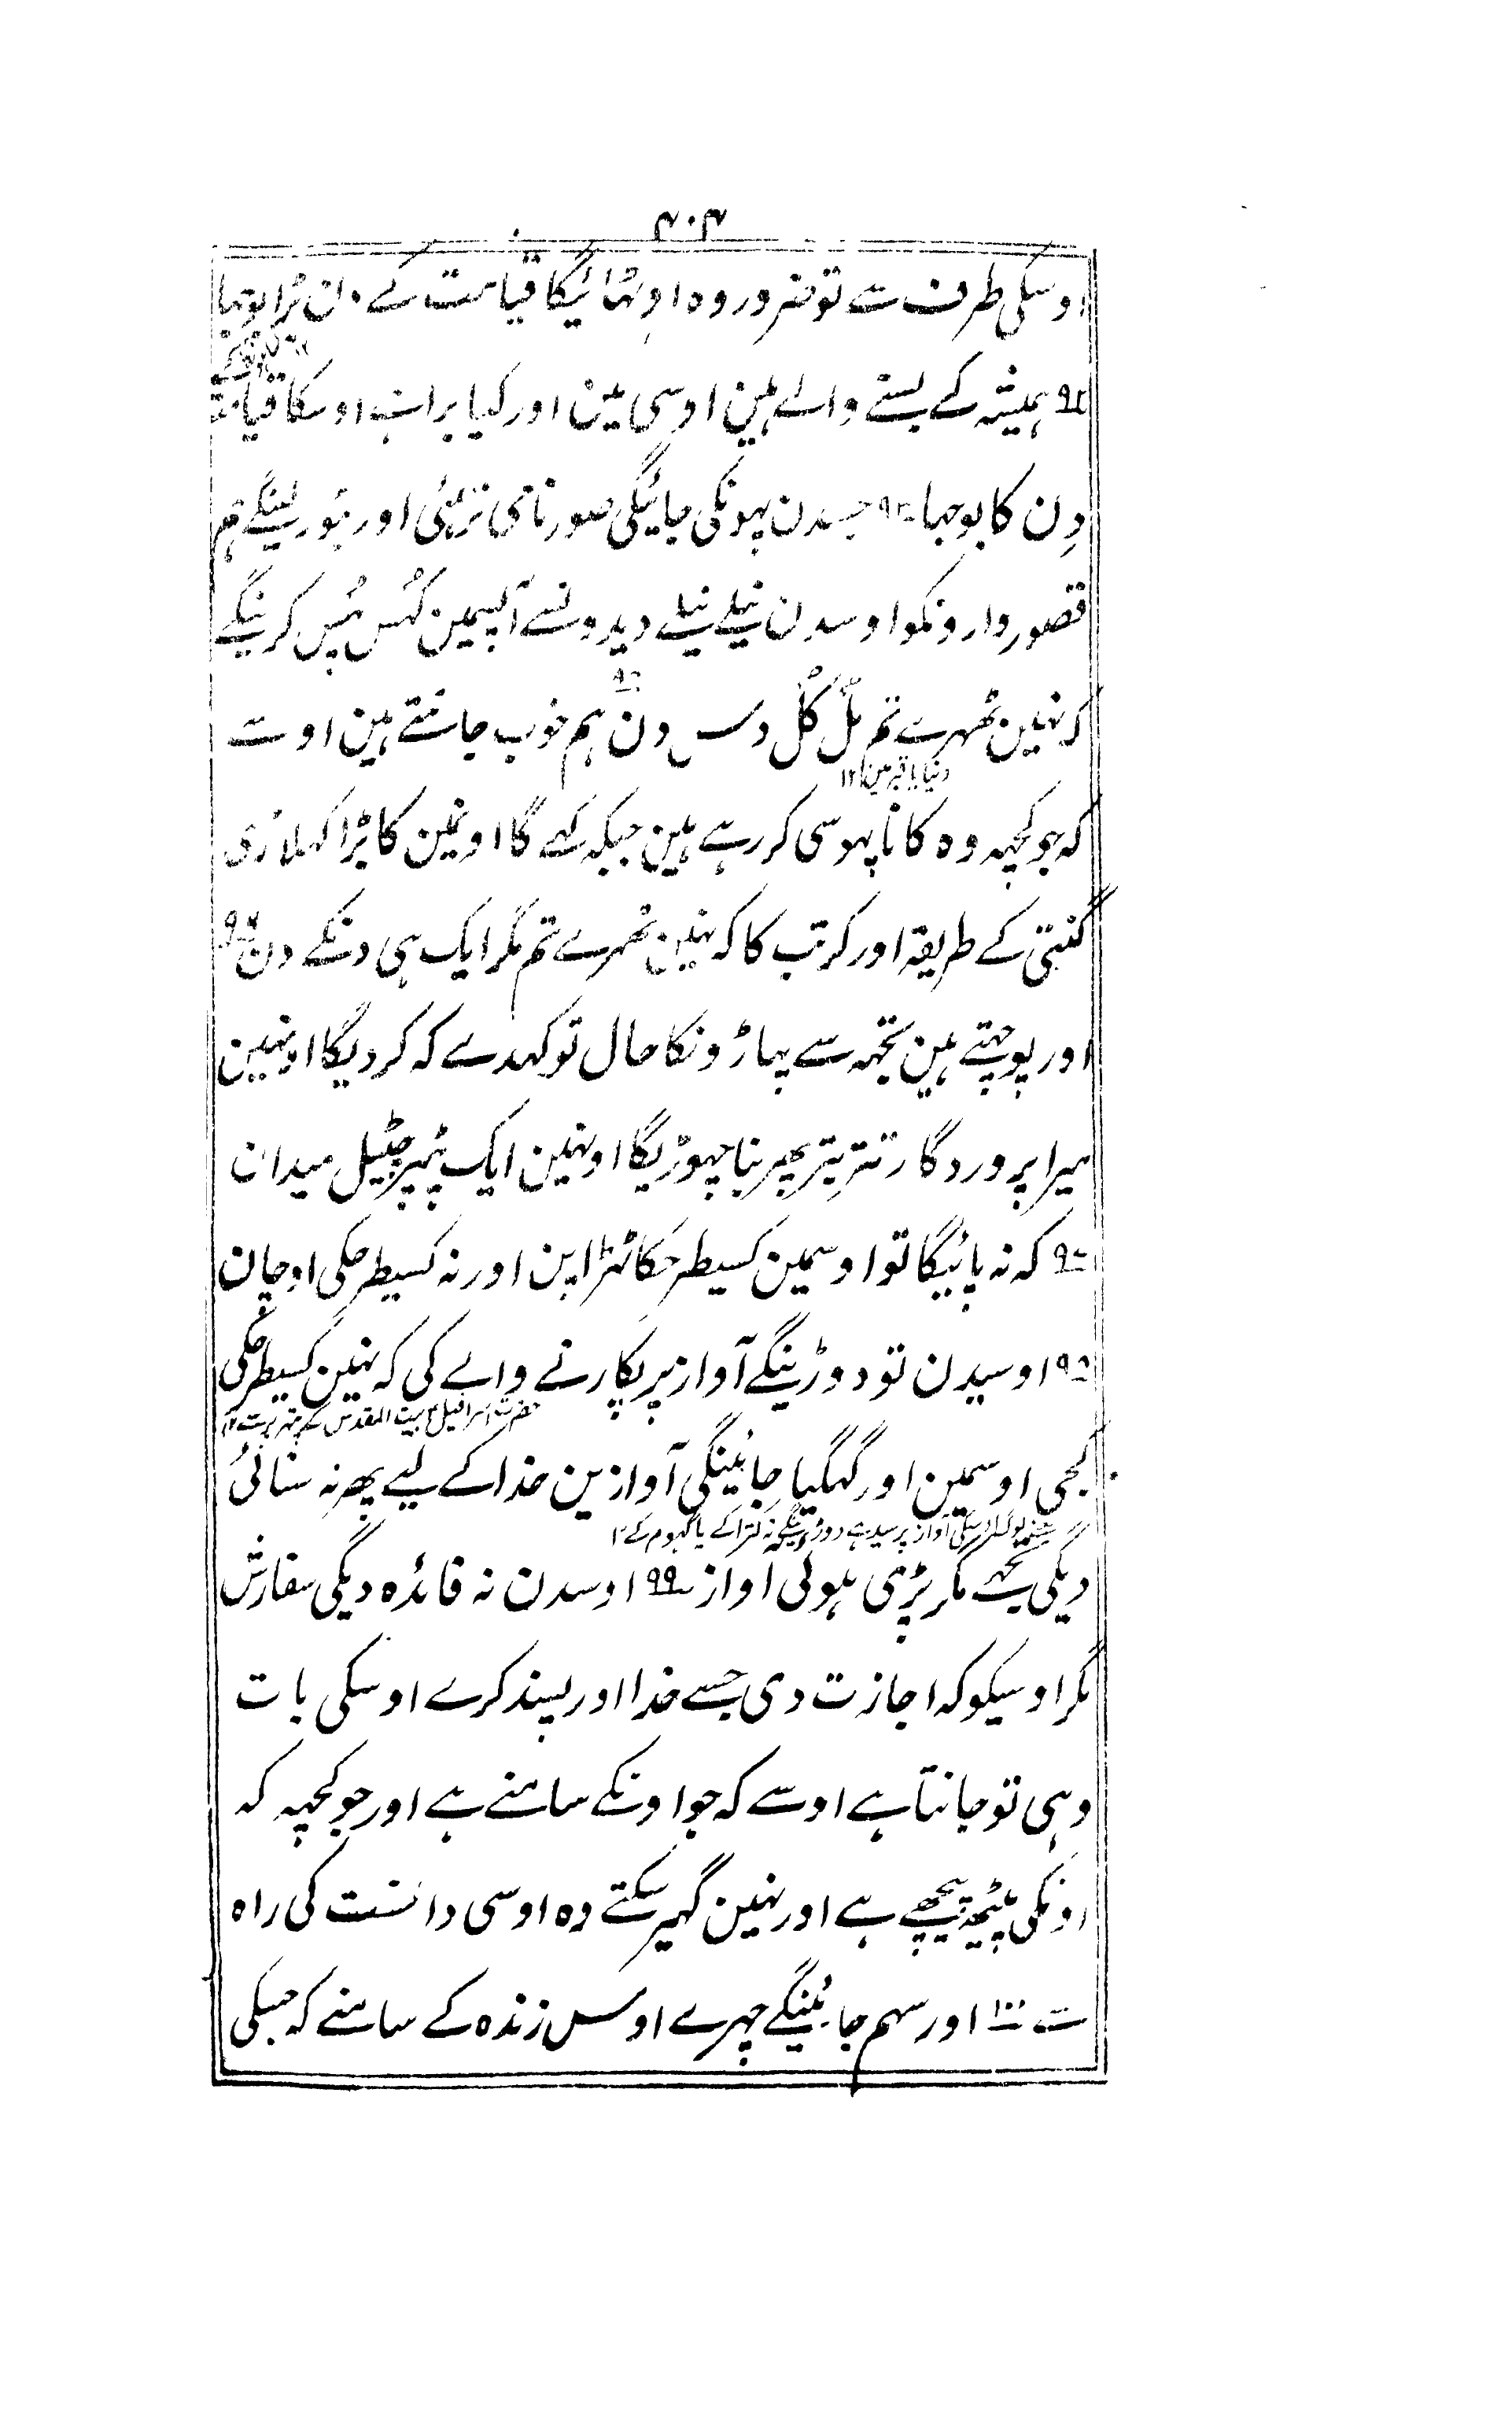 ۴۰۴
اوسکی طرف سے تو ضرور وہ اوٹھائیگا قیامت کے دن بڑا بوجھا
ہمیشہ کے بسنے والے ہین اوسی مین اور کیا برا ہے اوسکا قیامت
دِن کا بوجہا جسدن پہونکی جائیگی صور نامی نرسئی اور بٹور لینگے ہم
قصور وارونکو اوسدن نیلے نیلے دیدونسے آپسمین کُہس پُہس کرینگے
کہ نہین ٹھہرے تم مُل کُل دس دن ہم خوب جانتے ہین اوسے
دنیا یا قبر مین ۱۲
کہ جو کچہہ وہ کاناپہوسی کر رہے ہین جبکہ کہے گا اونمین کا بڑا کہلاڑی
گنتی کے طریقہ اور کرتب کا کہ نہین ٹھہرے تم مگر ایک ہی دنکے دن
اور پوچہتے ہین تجھہ سے پہاڑونکا حال تو کہدے کہ کر دیگا اونہین
میرا پروردگار تتر بتر پھر بنا چہوڑیگا اونہین ایک پٹپر چٹیل میدان
کہ نہ پائیگا تو اوسمین کسیطرحکا ٹہڑاپن اور نہ کسیطرحکی اونچان
اوسیدن تو دوڑینگے آواز پر پکارنے والے کی کہ نہین کسیطرحکی
حضرت اسرافیل بیت المقدس کے پتہر پر سے ۱۲
کجی اوسمین اور گہگیا جائینگی آوازین خدا کے لیے پھر نہ سنائی
آواز پر سیدہے دوڑینگے نہ کترا کے یا گہوم کے ۱۲
دیگی تجھے مگر پڑی ہوئی آواز ۹۹ اوسدن نہ فائدہ دیگی سفارش
مگر اوسیکو کہ اجازت دی جسے خدا اور پسند کرے اوسکی بات
وہی تو جانتا ہے اوسے کہ جو اونکے سامنے ہے اور جو کچہہ کہ
اونکی پیٹھہ پیچھے ہے اور نہین گہیر سکتے وہ اوسی دانست کی راہ
سے ۱۰۰ اور سہم جائینگے چہرے اوس زندہ کے سامنے کہ جسکی